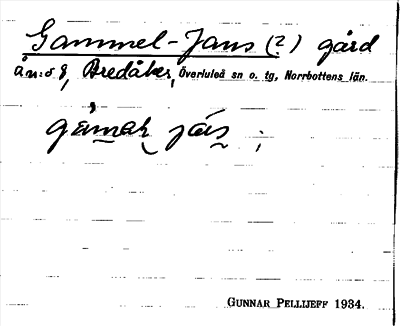 Gammel-Jans (?) gård
å n:o 8, Bredåker, Överluleå sn o. tg, Norrbottens län.
gåmak jás ;
GUNNAR PELLIJEFF 1934.